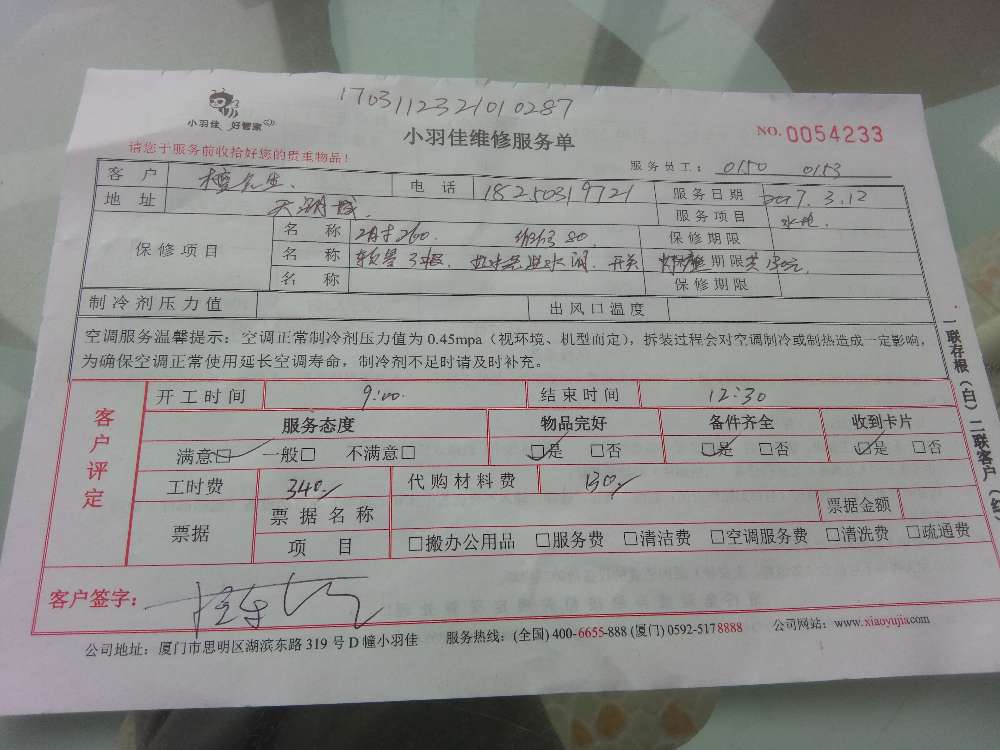 17031123210​10287
小羽佳 好管家
小羽佳维修服务单
NO. 0054233
请您于服务前收拾好您的贵重物品！
服务员工： 0150 0153
客户 先生. 电话 18250319721 服务日期 2017.3.12
地址 天湖城. 服务项目 水电.
保修项目
名称 260. 80 保修期限
名称 软管3根. 进水阀. 开关 保修期限 共130元
名称 保修期限
制冷剂压力值 出风口温度
空调服务温馨提示：空调正常制冷剂压力值为0.45mpa（视环境、机型而定），拆装过程会对空调制冷或制热造成一定影响，
为确保空调正常使用延长空调寿命，制冷剂不足时请及时补充。
客户评定
开工时间 9:00. 结束时间 12:30
服务态度 物品完好 备件齐全 收到卡片
满意□ 一般□ 不满意□ □是 □否 □是 □否 □是 □否
工时费 340 代购材料费 130
票据 票据名称 票据金额
项目 □搬办公用品 □服务费 □清洁费 □空调服务费 □清洗费 □疏通费
客户签字：
公司地址：厦门市思明区湖滨东路319号D幢小羽佳 服务热线：(全国) 400-6655-888 (厦门) 0592-5178888 公司网站：www.xiaoyujia.com
一联存根（白）二联客户（红